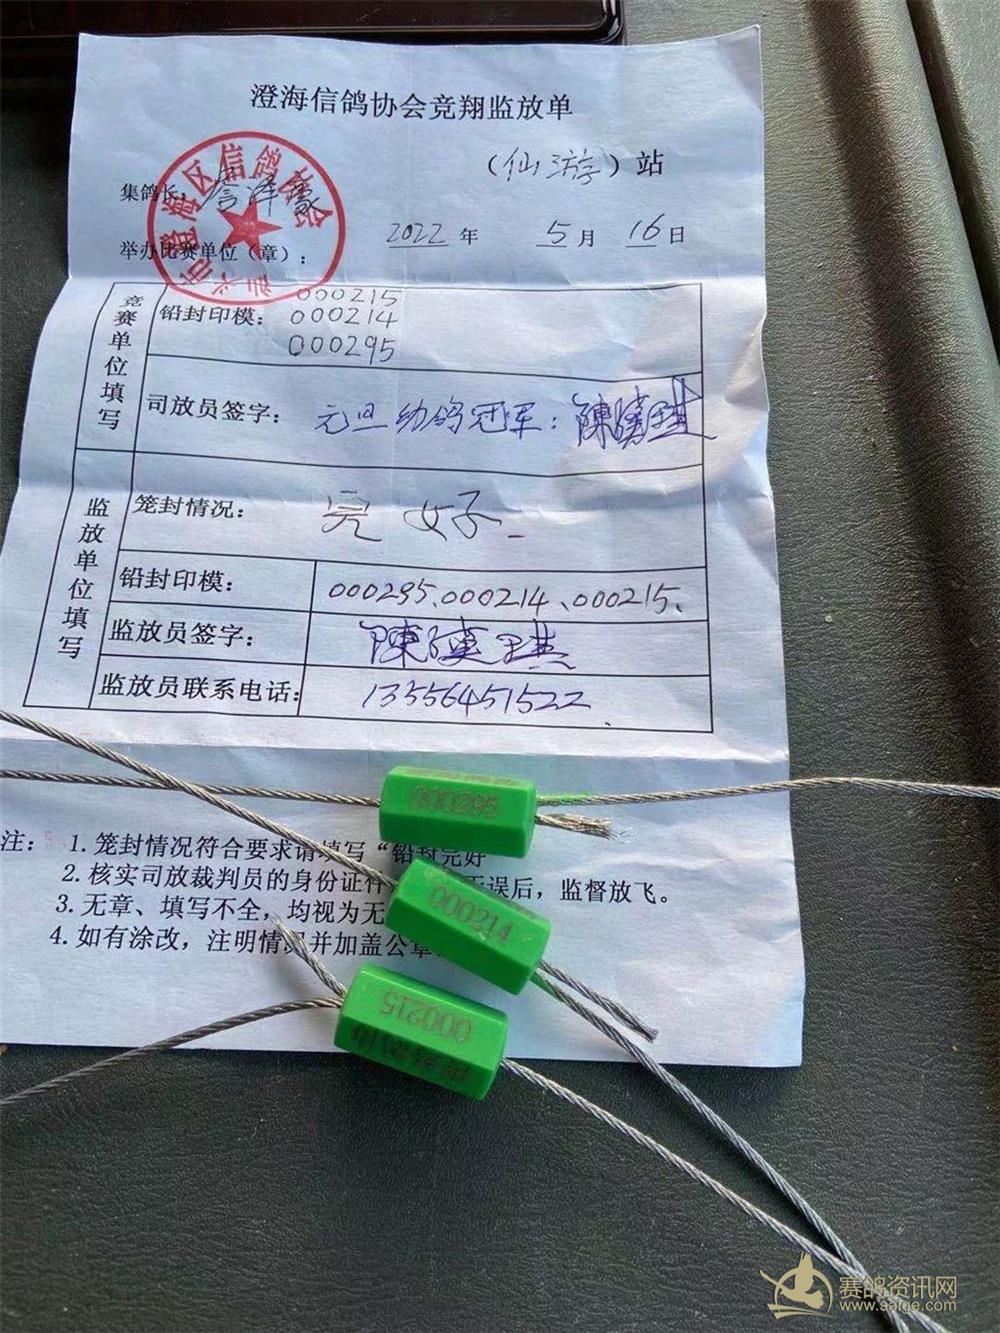 澄海信鸽协会竞翔监放单
（仙游）站
集鸽长：
汕头市澄海区信鸽协会
举办比赛单位（章）：
2022 年 5 月 16 日
竞赛单位填写
铅封印模：
000215
000214
000295
司放员签字： 元旦幼鸽冠军：
监放单位填写
笼封情况： 完好
铅封印模： 000295、000214、000215、
监放员签字：
监放员联系电话： 13556451522
000295
注： 1. 笼封情况符合要求请填写“铅封完好
2. 核实司放裁判员的身份证件 无误后，监督放飞。
000214
3. 无章、填写不全，均视为无
4. 如有涂改，注明情况并加盖公章
000215
赛鸽资讯网
www.saige.com